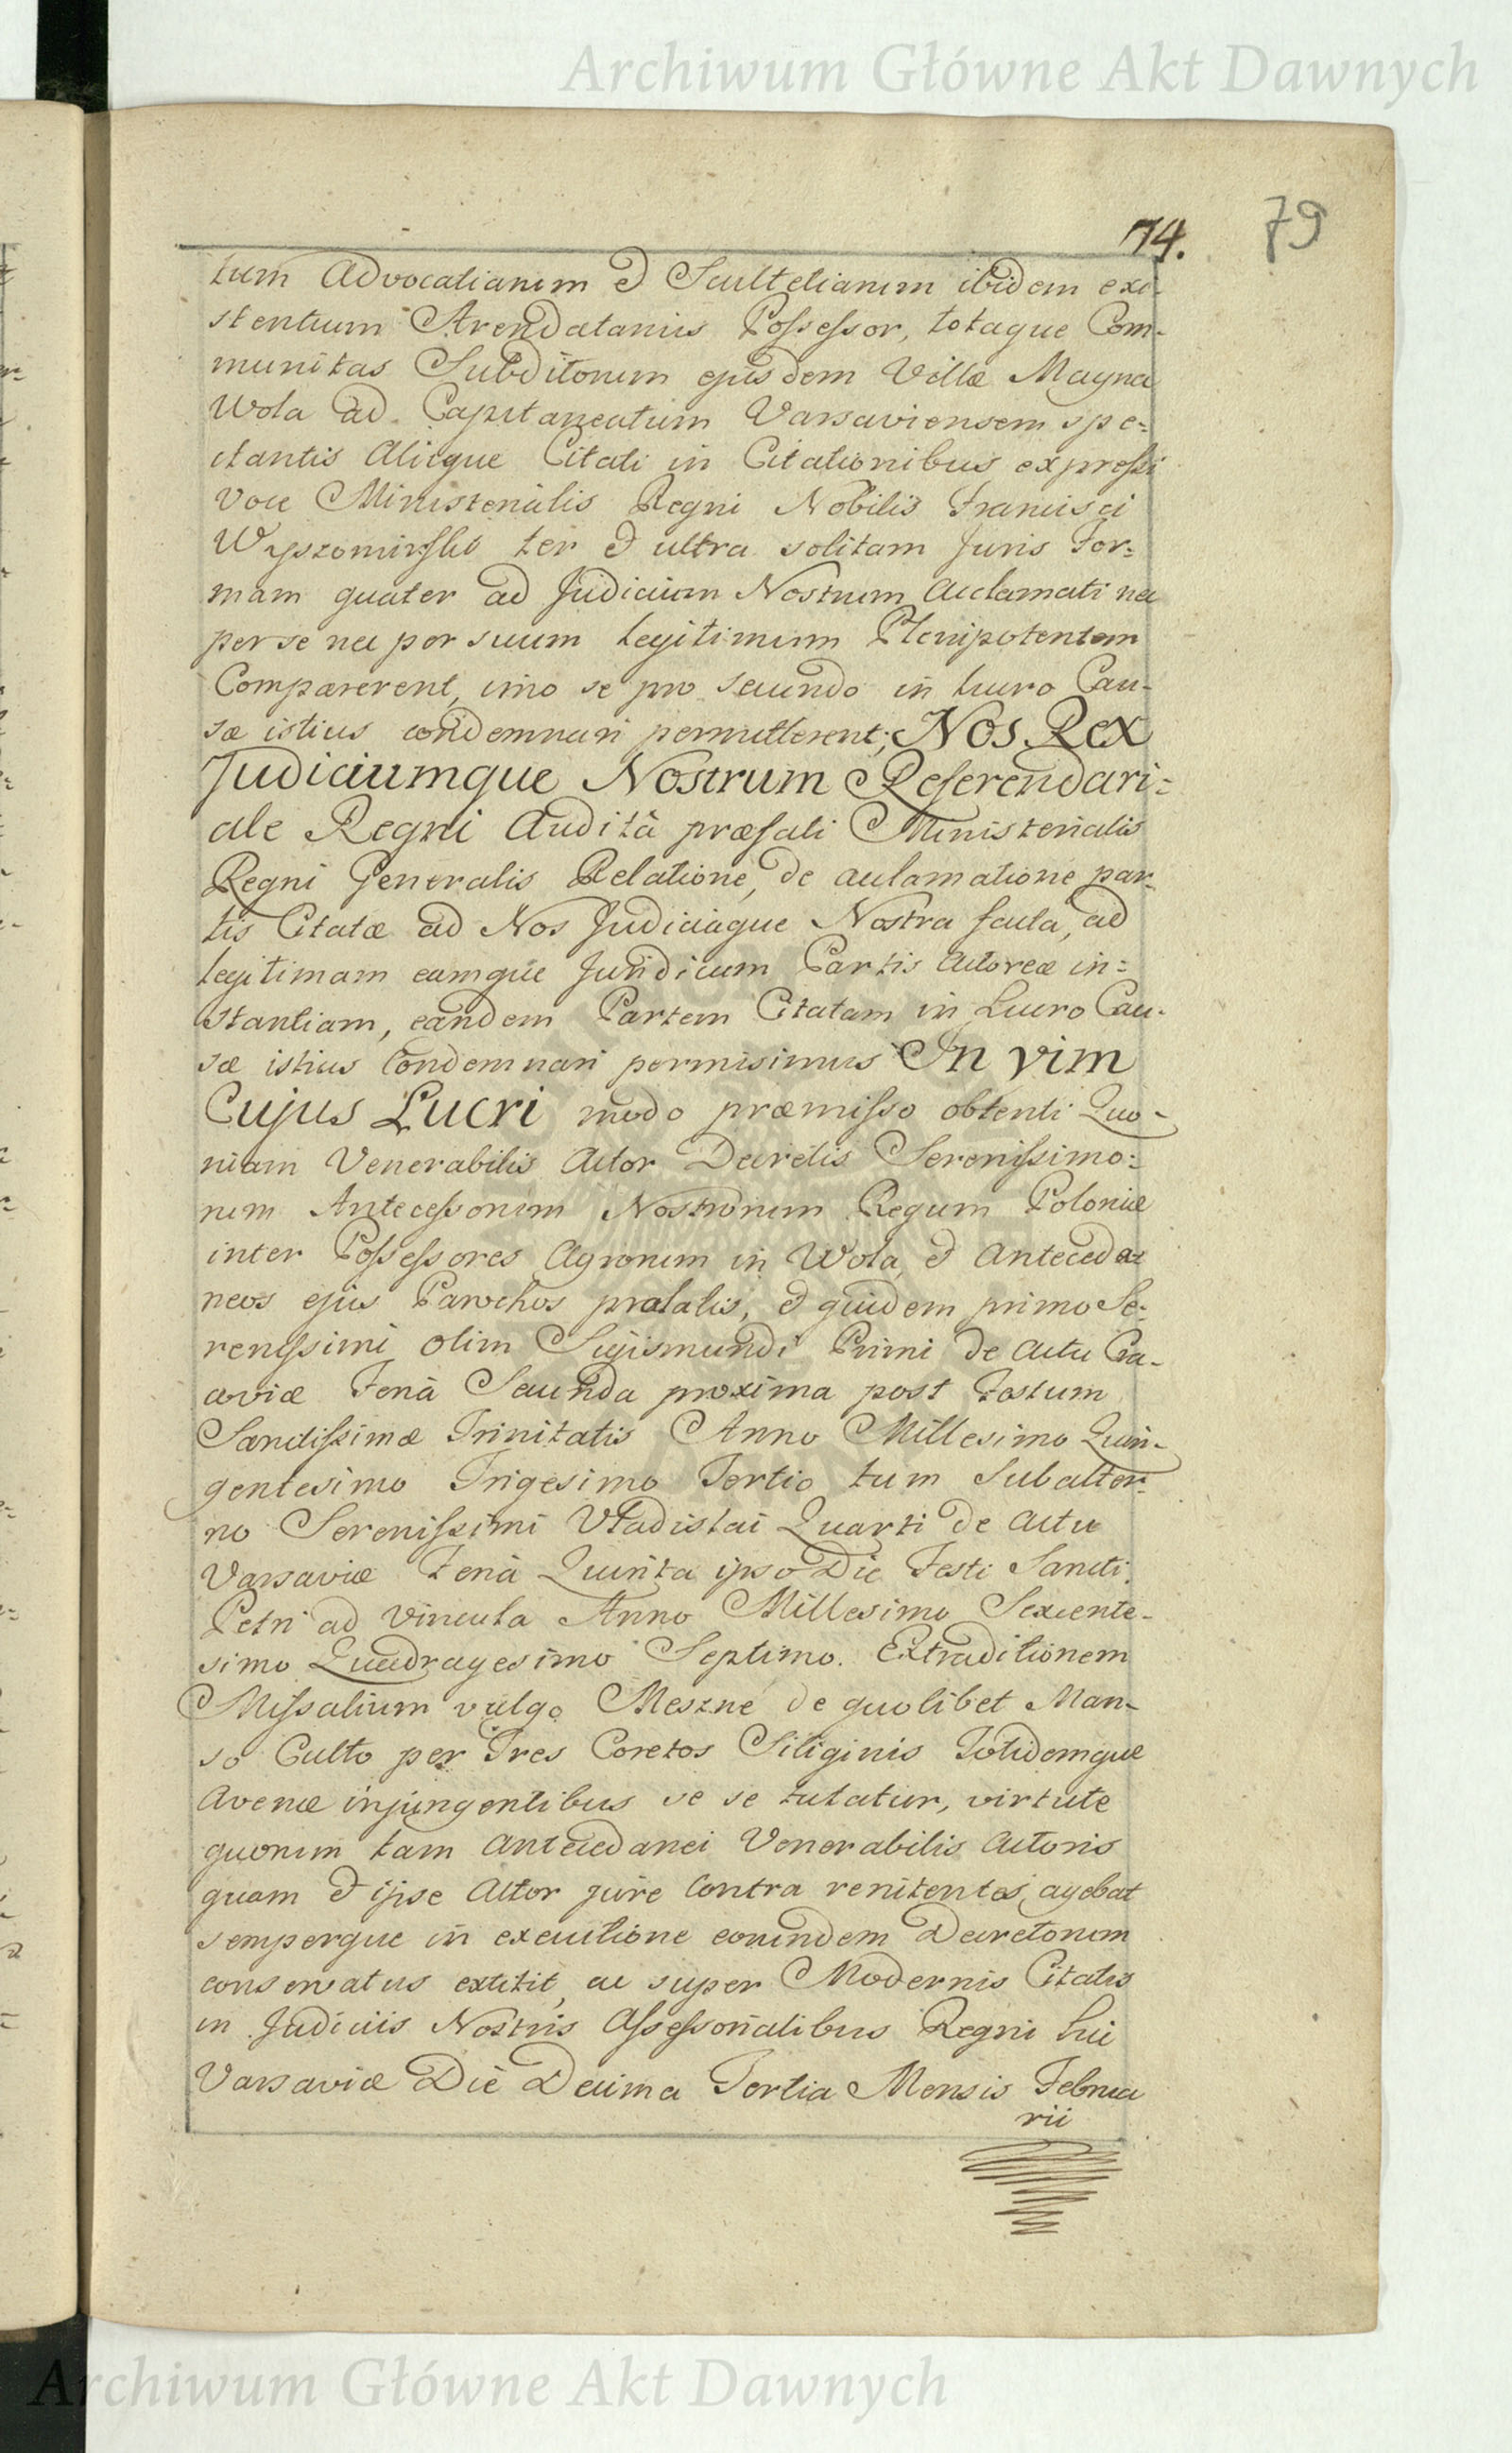 Archiwum Główne Akt Dawnych
79
74.
tum Advocatianum et Scultetianum ibidem exi-
stentium Arendatarius Possessor, totaque Com-
munitas Subditorum ejusdem Villæ Magna
Wola ad Capitaneatum Varsaviensem spe-
ctantis Aliique Citati in Citationibus expressi
voce Ministerialis Regni Nobilis Francisci
Wyszomirski ter et ultra solitam Juris For-
mam quater ad Judicium Nostrum acclamati nec
per se nec per suum legitimum Plenipotentem
Comparerent, imo se pro secundo in lucro Cau-
sæ istius condemnari permitterent; Nos Rex
Judiciumque Nostrum Referendari-
ale Regni Audità præfati Ministerialis
Regni Generalis Relatione, de acclamatione par-
tis Citatæ ad Nos Judiciaque Nostra facta, ad
legitimam eamque Juridicam Partis Actoreæ in-
stantiam, eandem Partem Citatam in Lucro Cau-
sæ istius Condemnari permisimus In vim
Cujus Lucri modo præmisso obtenti Quo-
niam Venerabilis Actor Decretis Serenissimo-
rum Antecessorum Nostrorum Regum Poloniæ
inter Possessores Agrorum in Wola, et Anteceda-
neos ejus Parochos prolatis, et quidem primo Se-
renissimi olim Sigismundi Primi de Actu Cra-
coviæ Feriâ Secunda proxima post Festum
Sanctissimæ Trinitatis Anno Millesimo Quin-
gentesimo Trigesimo Tertio tum Subalter-
no Serenissimi Vladislai Quarti de Actu
Varsaviæ Feriâ Quinta ipso Die Festi Sancti
Petri ad Vincula Anno Millesimo Sexcente-
simo Quadragesimo Septimo. Extraditionem
Missalium vulgo Meszne de quolibet Man-
so Culto per Tres Coretos Siliginis Totidemque
Avenæ injungentibus se se tutatur, virtute
quorum tam Antecedanei Venerabilis Actoris
quam et ipse Actor jure Contra renitentes, agebat
semperque in executione eorundem Decretorum
conservatus extitit, ac super Modernis Citatis
in Judiciis Nostris Assessorialibus Regni hic
Varsaviæ Die Decima Tertia Mensis Februa
rii
Archiwum Główne Akt Dawnych